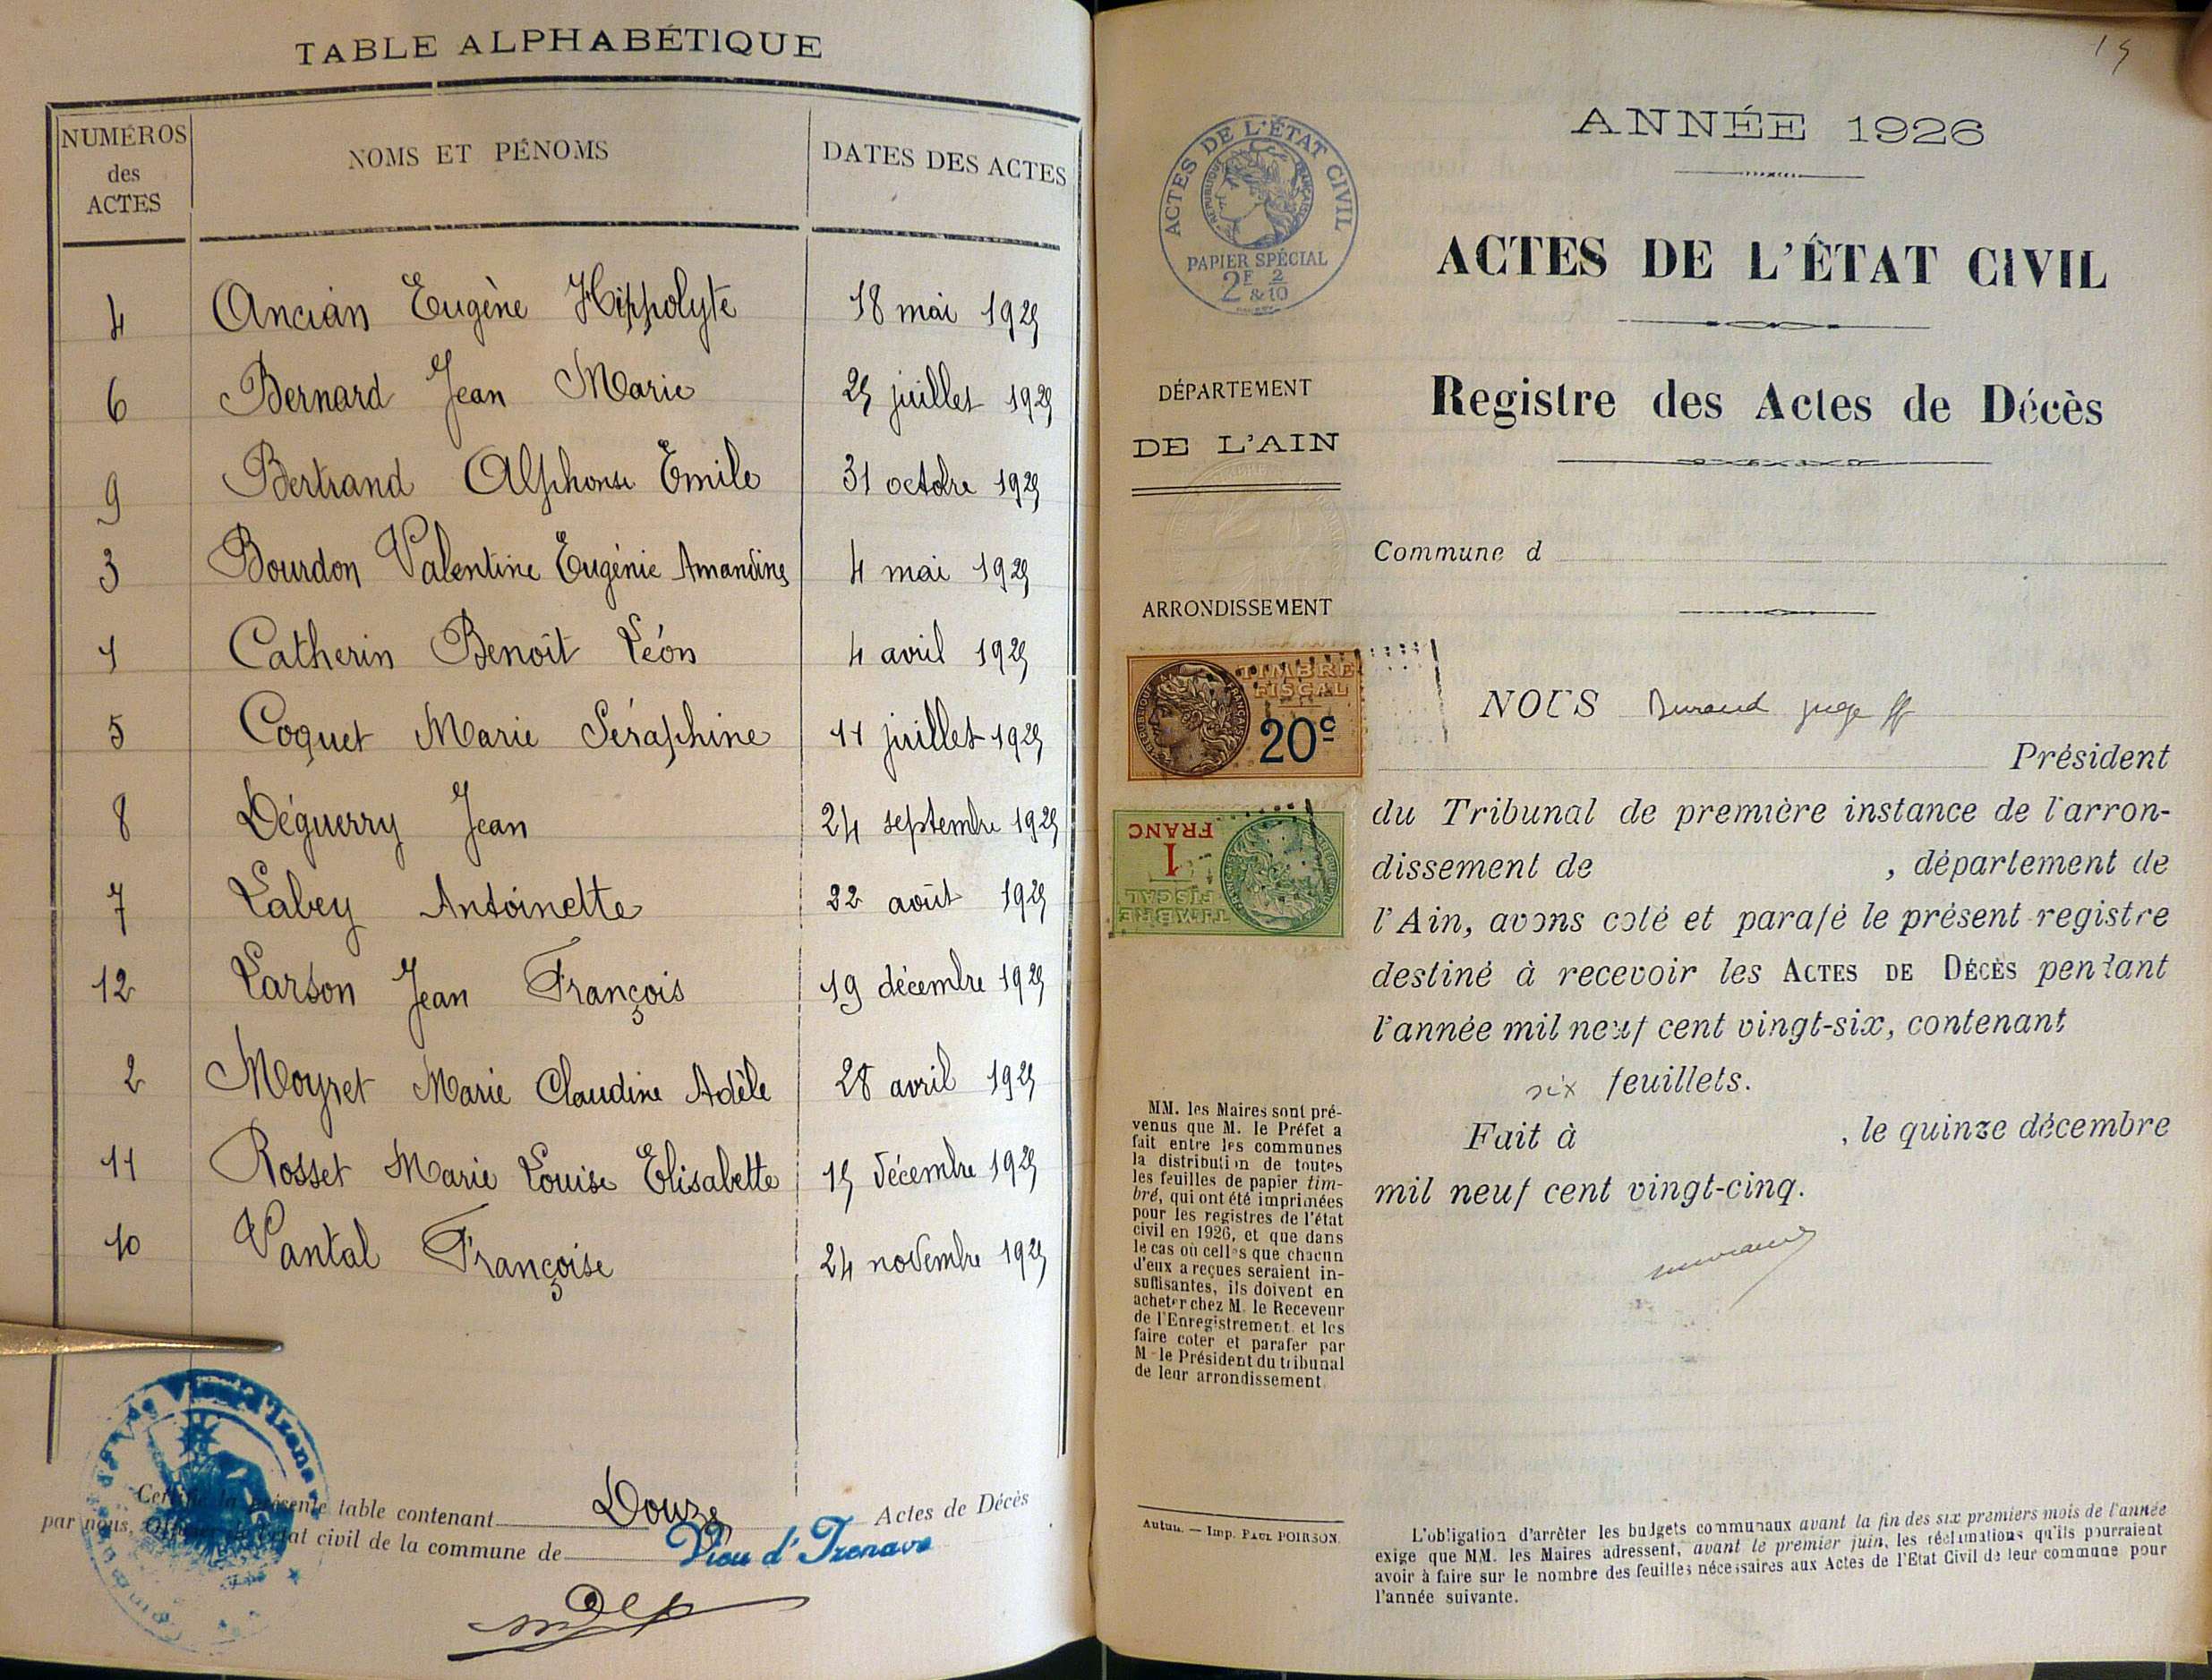 TABLE ALPHABÉTIQUE
NUMÉROS des ACTES
NOMS ET PÉNOMS
DATES DES ACTES
4 Ancian Eugène Hippolyte 18 mai 1925
6 Bernard Jean Marie 25 juillet 1925
9 Bertrand Alphonse Emile 31 octobre 1925
3 Bourdon Valentine Eugénie Amandine 4 mai 1925
1 Catherin Benoît Léon 4 avril 1925
5 Coquet Marie Séraphine 11 juillet 1925
8 Déguerry Jean 24 septembre 1925
7 Labey Antoinette 22 août 1925
12 Larson Jean François 19 décembre 1925
2 Moyret Marie Claudine Adèle 28 avril 1925
11 Rosset Marie Louise Elisabette 15 décembre 1925
10 Vantal Françoise 24 novembre 1925
Certifié la présente table contenant Douze Actes de Décès
par nous, Officier de l'état civil de la commune de Vieu d'Izenave
15
ANNÉE 1926
ACTES DE L'ÉTAT CIVIL
RÉPUBLIQUE FRANÇAISE
PAPIER SPÉCIAL
2F 2/10
&
ACTES DE L'ÉTAT CIVIL
Registre des Actes de Décès
DÉPARTEMENT
DE L'AIN
Commune d
ARRONDISSEMENT
TIMBRE
FISCAL
20c
1
FRANC
TIMBRE
FISCAL
NOUS Durand juge ff
Président
du Tribunal de première instance de l'arron-
dissement de , département de
l'Ain, avons coté et parafé le présent registre
destiné à recevoir les ACTES DE DÉCÈS pendant
l'année mil neuf cent vingt-six, contenant
six feuillets.
Fait à , le quinze décembre
mil neuf cent vingt-cinq.
MM. les Maires sont pré-
venus que M. le Préfet a
fait entre les communes
la distribution de toutes
les feuilles de papier tim-
bré, qui ont été imprimées
pour les registres de l'état
civil en 1926, et que dans
le cas où celles que chacun
d'eux a reçues seraient in-
suffisantes, ils doivent en
acheter chez M. le Receveur
de l'Enregistrement et les
faire coter et parafer par
M. le Président du tribunal
de leur arrondissement.
Autun. — Imp. PAUL POIRSON.
L'obligation d'arrêter les budgets communaux avant la fin des six premiers mois de l'année
exige que MM. les Maires adressent, avant le premier juin, les réclamations qu'ils pourraient
avoir à faire sur le nombre des feuilles nécessaires aux Actes de l'Etat Civil de leur commune pour
l'année suivante.